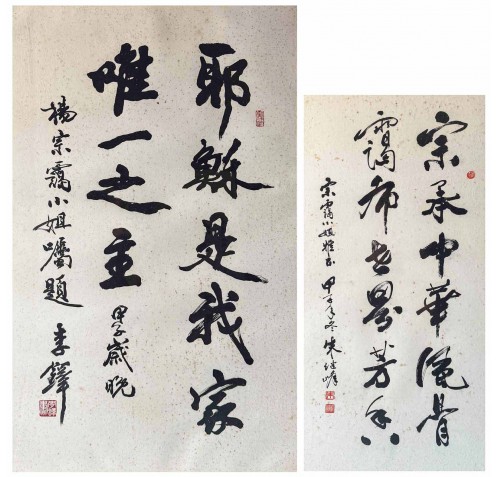 耶穌是我家
唯一之主
甲子歲晚
楊宗靄小姐囑題 李鐸
宗承中華風骨
靄布世界芳香
宗靄小姐雅正 甲子年冬